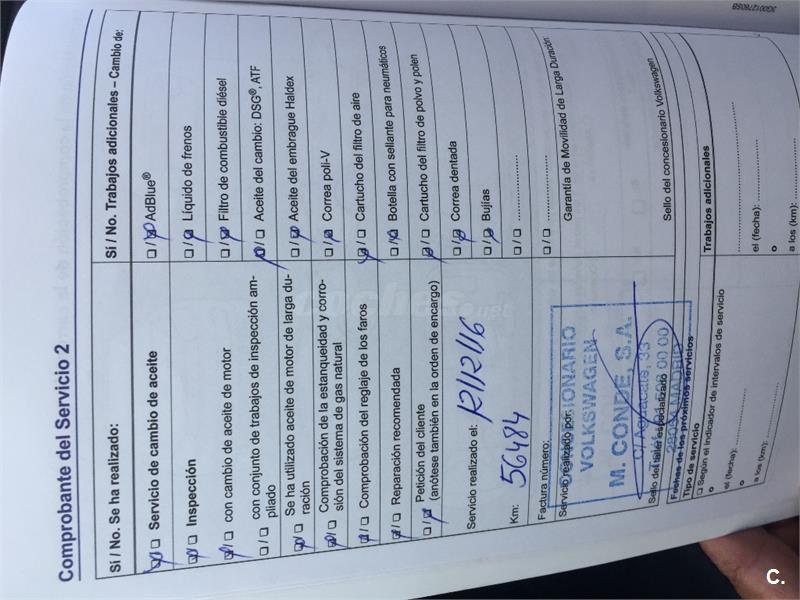 Comprobante del Servicio 2
Sí / No. Se ha realizado:
□ / □ Servicio de cambio de aceite
□ / □ Inspección
□ / □ con cambio de aceite de motor
con conjunto de trabajos de inspección am-
□ / □ pliado
Se ha utilizado aceite de motor de larga du-
□ / □ ración
□ / □ Comprobación de la estanqueidad y corro-
sión del sistema de gas natural
□ / □ Comprobación del reglaje de los faros
□ / □ Reparación recomendada
Petición del cliente
□ / □ (anótese también en la orden de encargo)
Servicio realizado el: 12/12/16
Km: 56484
Factura número:
Servicio realizado por:
CONCESIONARIO
VOLKSWAGEN
M. CONDE, S.A.
C/ Aguacate, 33
28044 MADRID
Sello del taller especializado
Fechas de los próximos servicios
Tipo de servicio
□ Según el indicador de intervalos de servicio
o
el (fecha):
o
a los (km):
Sí / No. Trabajos adicionales – Cambio de:
□ / □ AdBlue®
□ / □ Líquido de frenos
□ / □ Filtro de combustible diésel
□ / □ Aceite del cambio: DSG®, ATF
□ / □ Aceite del embrague Haldex
□ / □ Correa poli-V
□ / □ Cartucho del filtro de aire
□ / □ Botella con sellante para neumáticos
□ / □ Cartucho del filtro de polvo y polen
□ / □ Correa dentada
□ / □ Bujías
□ / □ ....................
□ / □ ....................
Garantía de Movilidad de Larga Duración
Sello del concesionario Volkswagen
Trabajos adicionales
....................
el (fecha): ....................
o
a los (km): ....................
C.